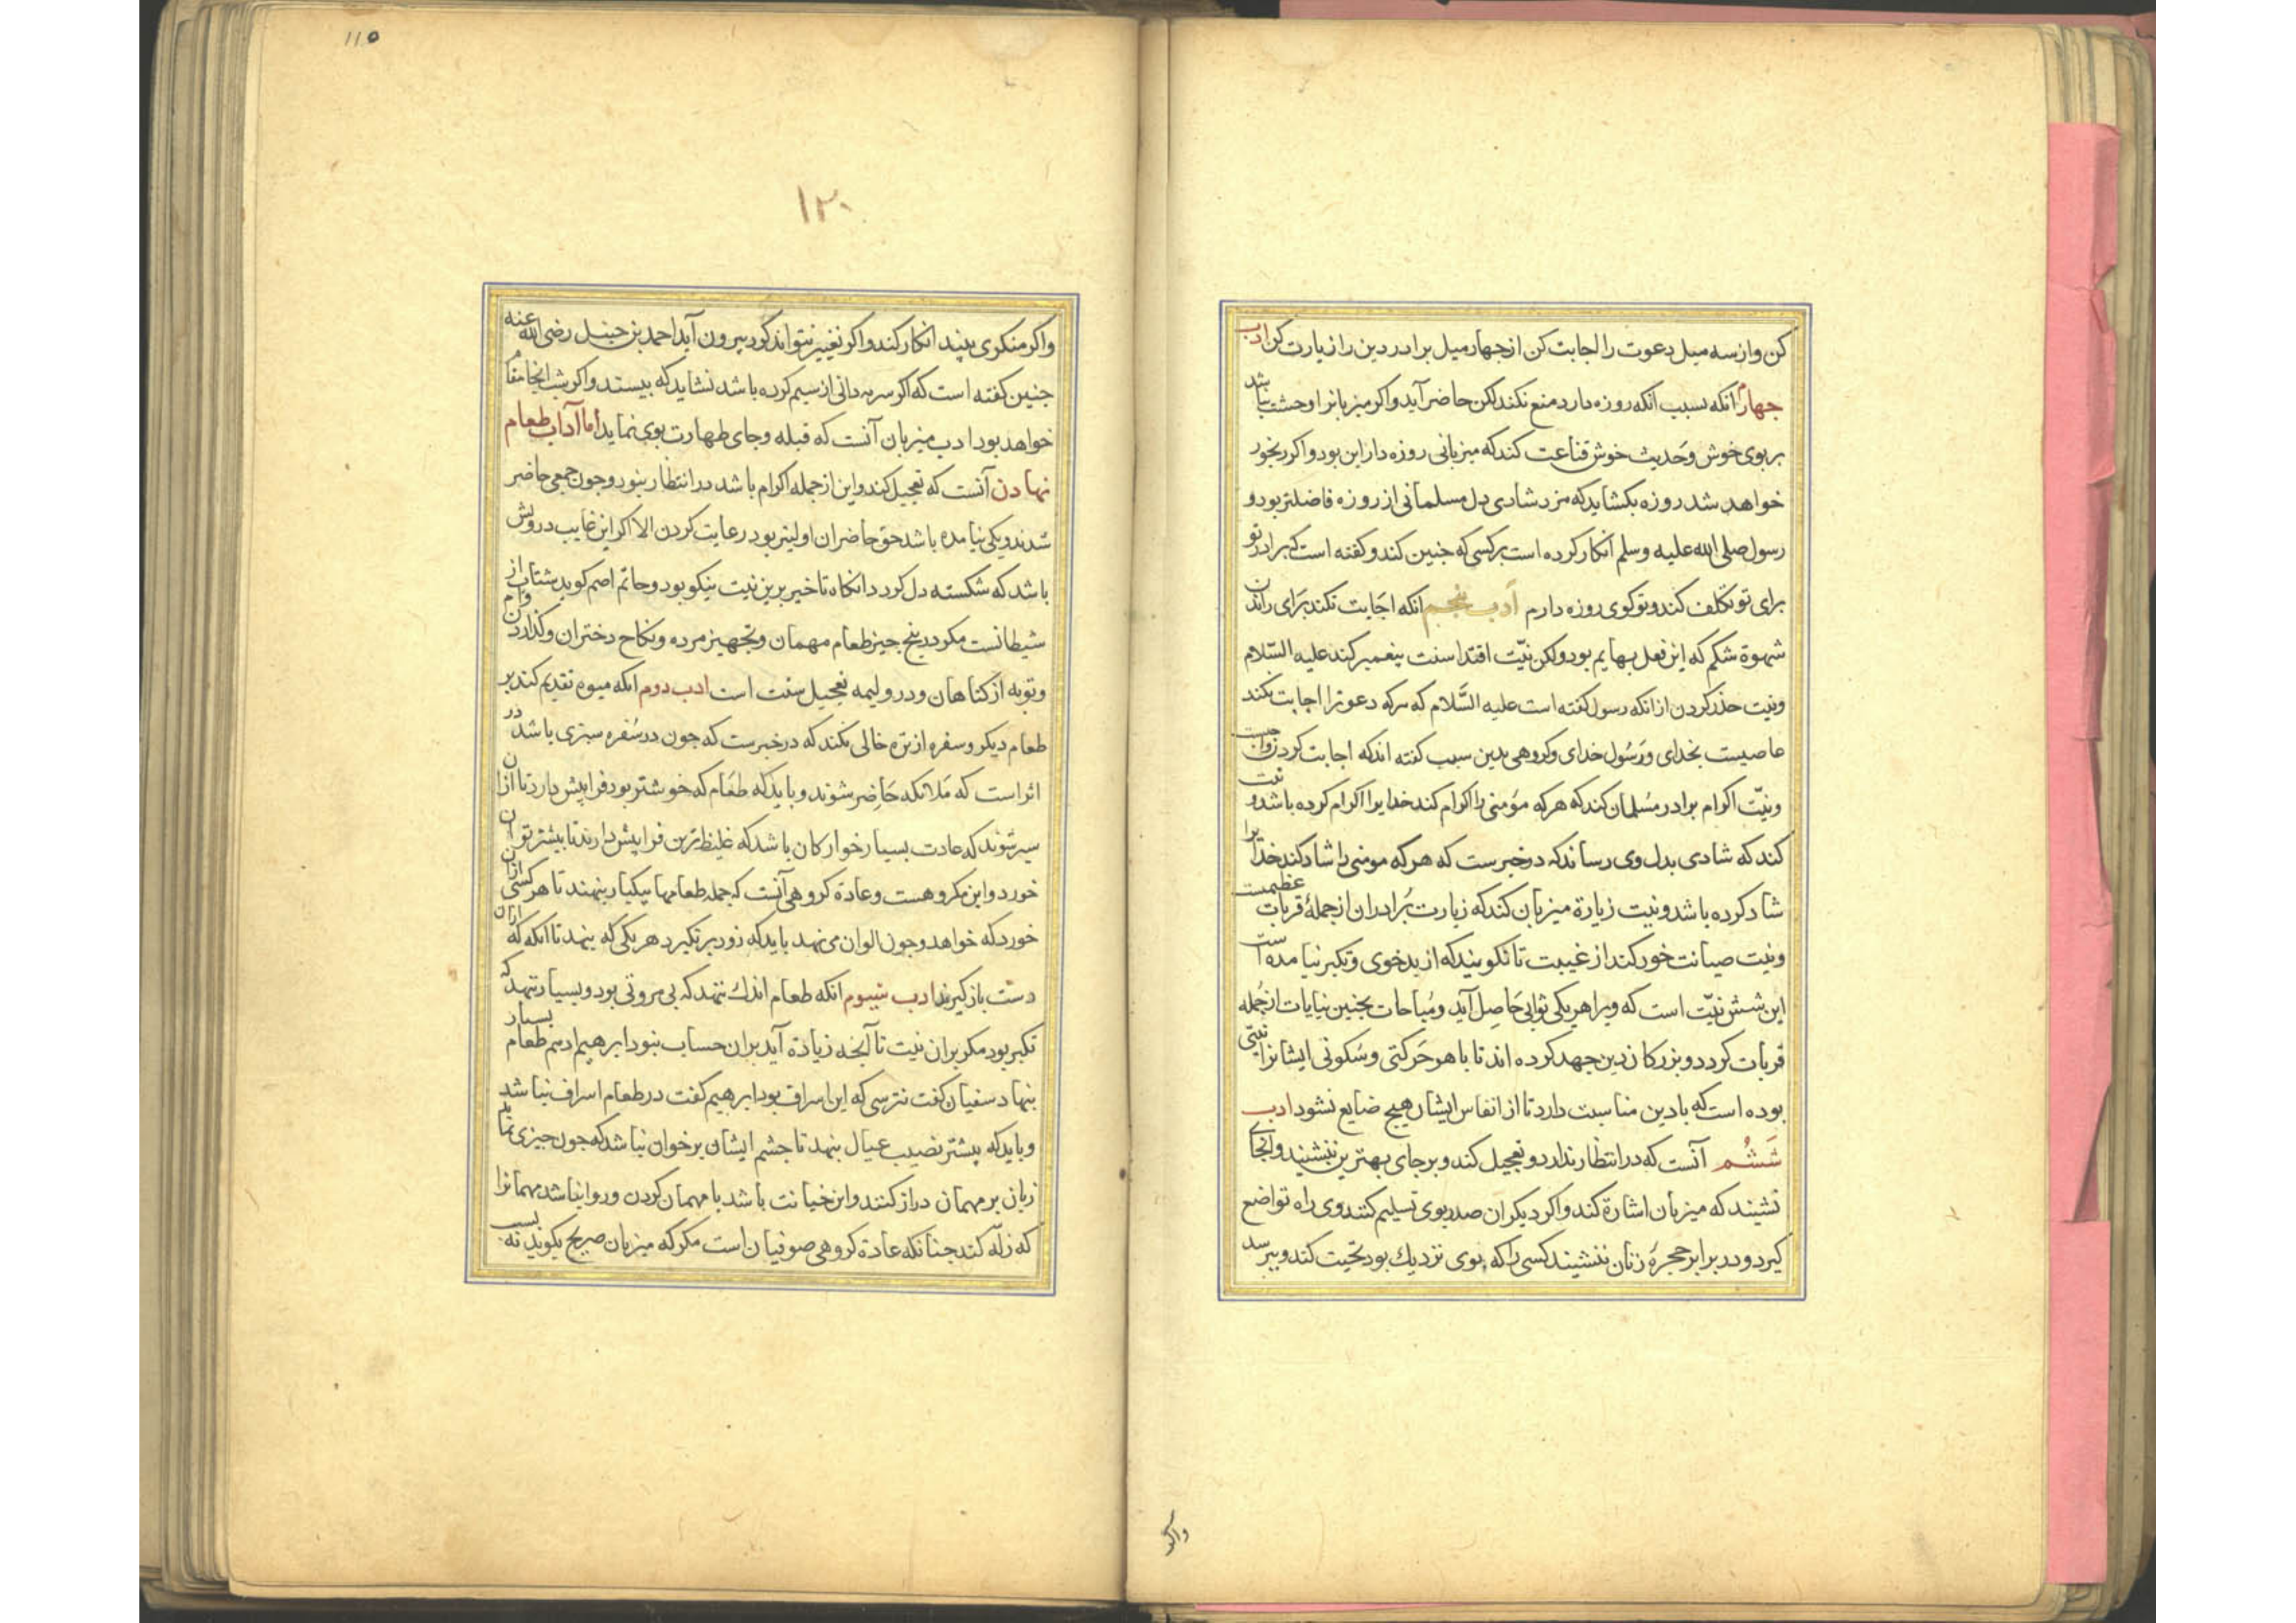 کن واز سه میل دعوت را اجابت کن از جهار میل برادر دین را زیارت کن ادب
جهارم انکه بسبب انکه روزه دارد منع نکند لکن حاضر آید واکر میزبانرا وحشت نباشد
ببوی خوش وحدیث خوش قناعت کند که میزبانی روزه دار این بود واکر رنجور
خواهد شد روزه بکشاید که مزد شادی دل مسلمانی از روزه فاضلتر بود و
رسول صلی الله علیه وسلم انکار کرده است بر کسی که جنین کند وکفته است که برادر تو
برای تو تکلف کند وتو کوی روزه دارم ادب پنجم انکه اجابت نکند برای راندن
شهوة شکم که این فعل بهایم بود ولکن نیّت اقتدا سنت پیغمبر کند علیه السّلام
ونیت حذر کردن از انکه رسول کفته است علیه السَّلام که هرکه دعوترا اجابت نکند
عاصیست بخدای ورَسُول خدای وکروهی بدین سبب کفته اند که اجابت کردن واجبست
ونیّت اکرام برادر مسُلمان کند که هرکه مؤمنی را اکرام کند خدایرا اکرام کرده باشد و نیت
کند که شادی بدل وی رساند که در خبرست که هرکه مومنی را شاد کند خدایرا
شاد کرده باشد ونیت زیارة میزبان کند که زیارت بُرادران از جملهٔ قربات عظیمست
ونیت صیانت خود کند از غیبت تا نکویند که از بدخوی وتکبر نیامده است
این شش نیّت است که ویرا بهریکی ثوابی حَاصِل آید ومُباحات بجنین نیات از جُمله
قربات کردد وبزرکان دین جهد کرده اند تا با هر حَرکتی وسُکونی ایشانرا نیتی
بوده است که با دین مناسبت دارد تا از انفاس ایشان هیچ ضایع نشود ادب
شَشُم آنست که در انتظار ندارد وتعجیل کند وبر جای بهترین ننشیند وانجای
نشیند که میزبان اشارة کند واکر دیکران صدر بوی تسلیم کنند وی راه تواضع
کیرد ودر برابر حجرهٔ زنان ننشیند کسی را که بوی نزدیك بود تحیت کند وبپرسد
واکر
110
١٢٠
واکر منکری بیند انکار کند واکر تغییر نتواند کرد بیرون آید احمد بن حنبل رضی الله عنه
جنین کفته است که اکر سرمه دانی از سیم کرده باشد نشاید که بیستد واکر شب انجا مقام
خواهد بود ادب میزبان آنست که قبله وجای طهارت بوی نماید اما آداب طعام
نهادن آنست که تعجیل کند واین از جمله اکرام باشد در انتظار نبود وجون جمعی حاضر
شدند ویکی نیامده باشد حق حاضران اولیتر بود رعایت کردن الا اکر این غایب درویش
باشد که شکسته دل کردد انکاه تاخیر برین نیت نیکو بود وحاتم اصم کوید شتاب از
شیطانست مکر در پنج جیز طعام مهمان وتجهیز مرده ونکاح دختران وکذاردن وام
وتوبه از کناهان ودر ولیمه تعجیل سنت است ادب دوم انکه میوه تقدیم کند بر
طعام دیکر وسفره از تره خالی نکند که در خبرست که جون در سُفره سبزی باشد در
اثر است که مَلائکه حَاضِر شوند وباید که طعَام که خوشتر بود فراپیش دارد تا ازان
سیر شوند که عادت بسیار خوارکان باشد که غلیظ ترین فراپیش دارند تا بیشتر توان
خورد واین مکروهست وعادة کروهی آنست که جمله طعامها بیکبار بنهند تا هرکسی ازان
خورد که خواهد وجون الوان می نهد باید که زود برنکیرد هریکی که بنهد تا انکه که ازان
دست باز کیرند ادب سیوم انکه طعام اندك ننهد که بی مروتی بود وبسیار ننهد که
تکبر بود مکر بران نیت تا آنجه زیادة آید بران حساب نبود ابرهیم ادهم طعام بسیار
بنهاد سفیان کفت نترسی که این اسراف بود ابرهیم کفت در طعام اسراف نباشد
وباید که پیشتر نصیب عیال بنهد تا جشم ایشان بر خوان نباشد که جون جیزی نماند
زبان بر مهمان دراز کنند واین خیانت باشد با مهمان کردن وروا نباشد مهمانرا
که زلّه کند جنانکه عادة کروهی صوفیان است مکر که میزبان صریح بکوید نه بسبب